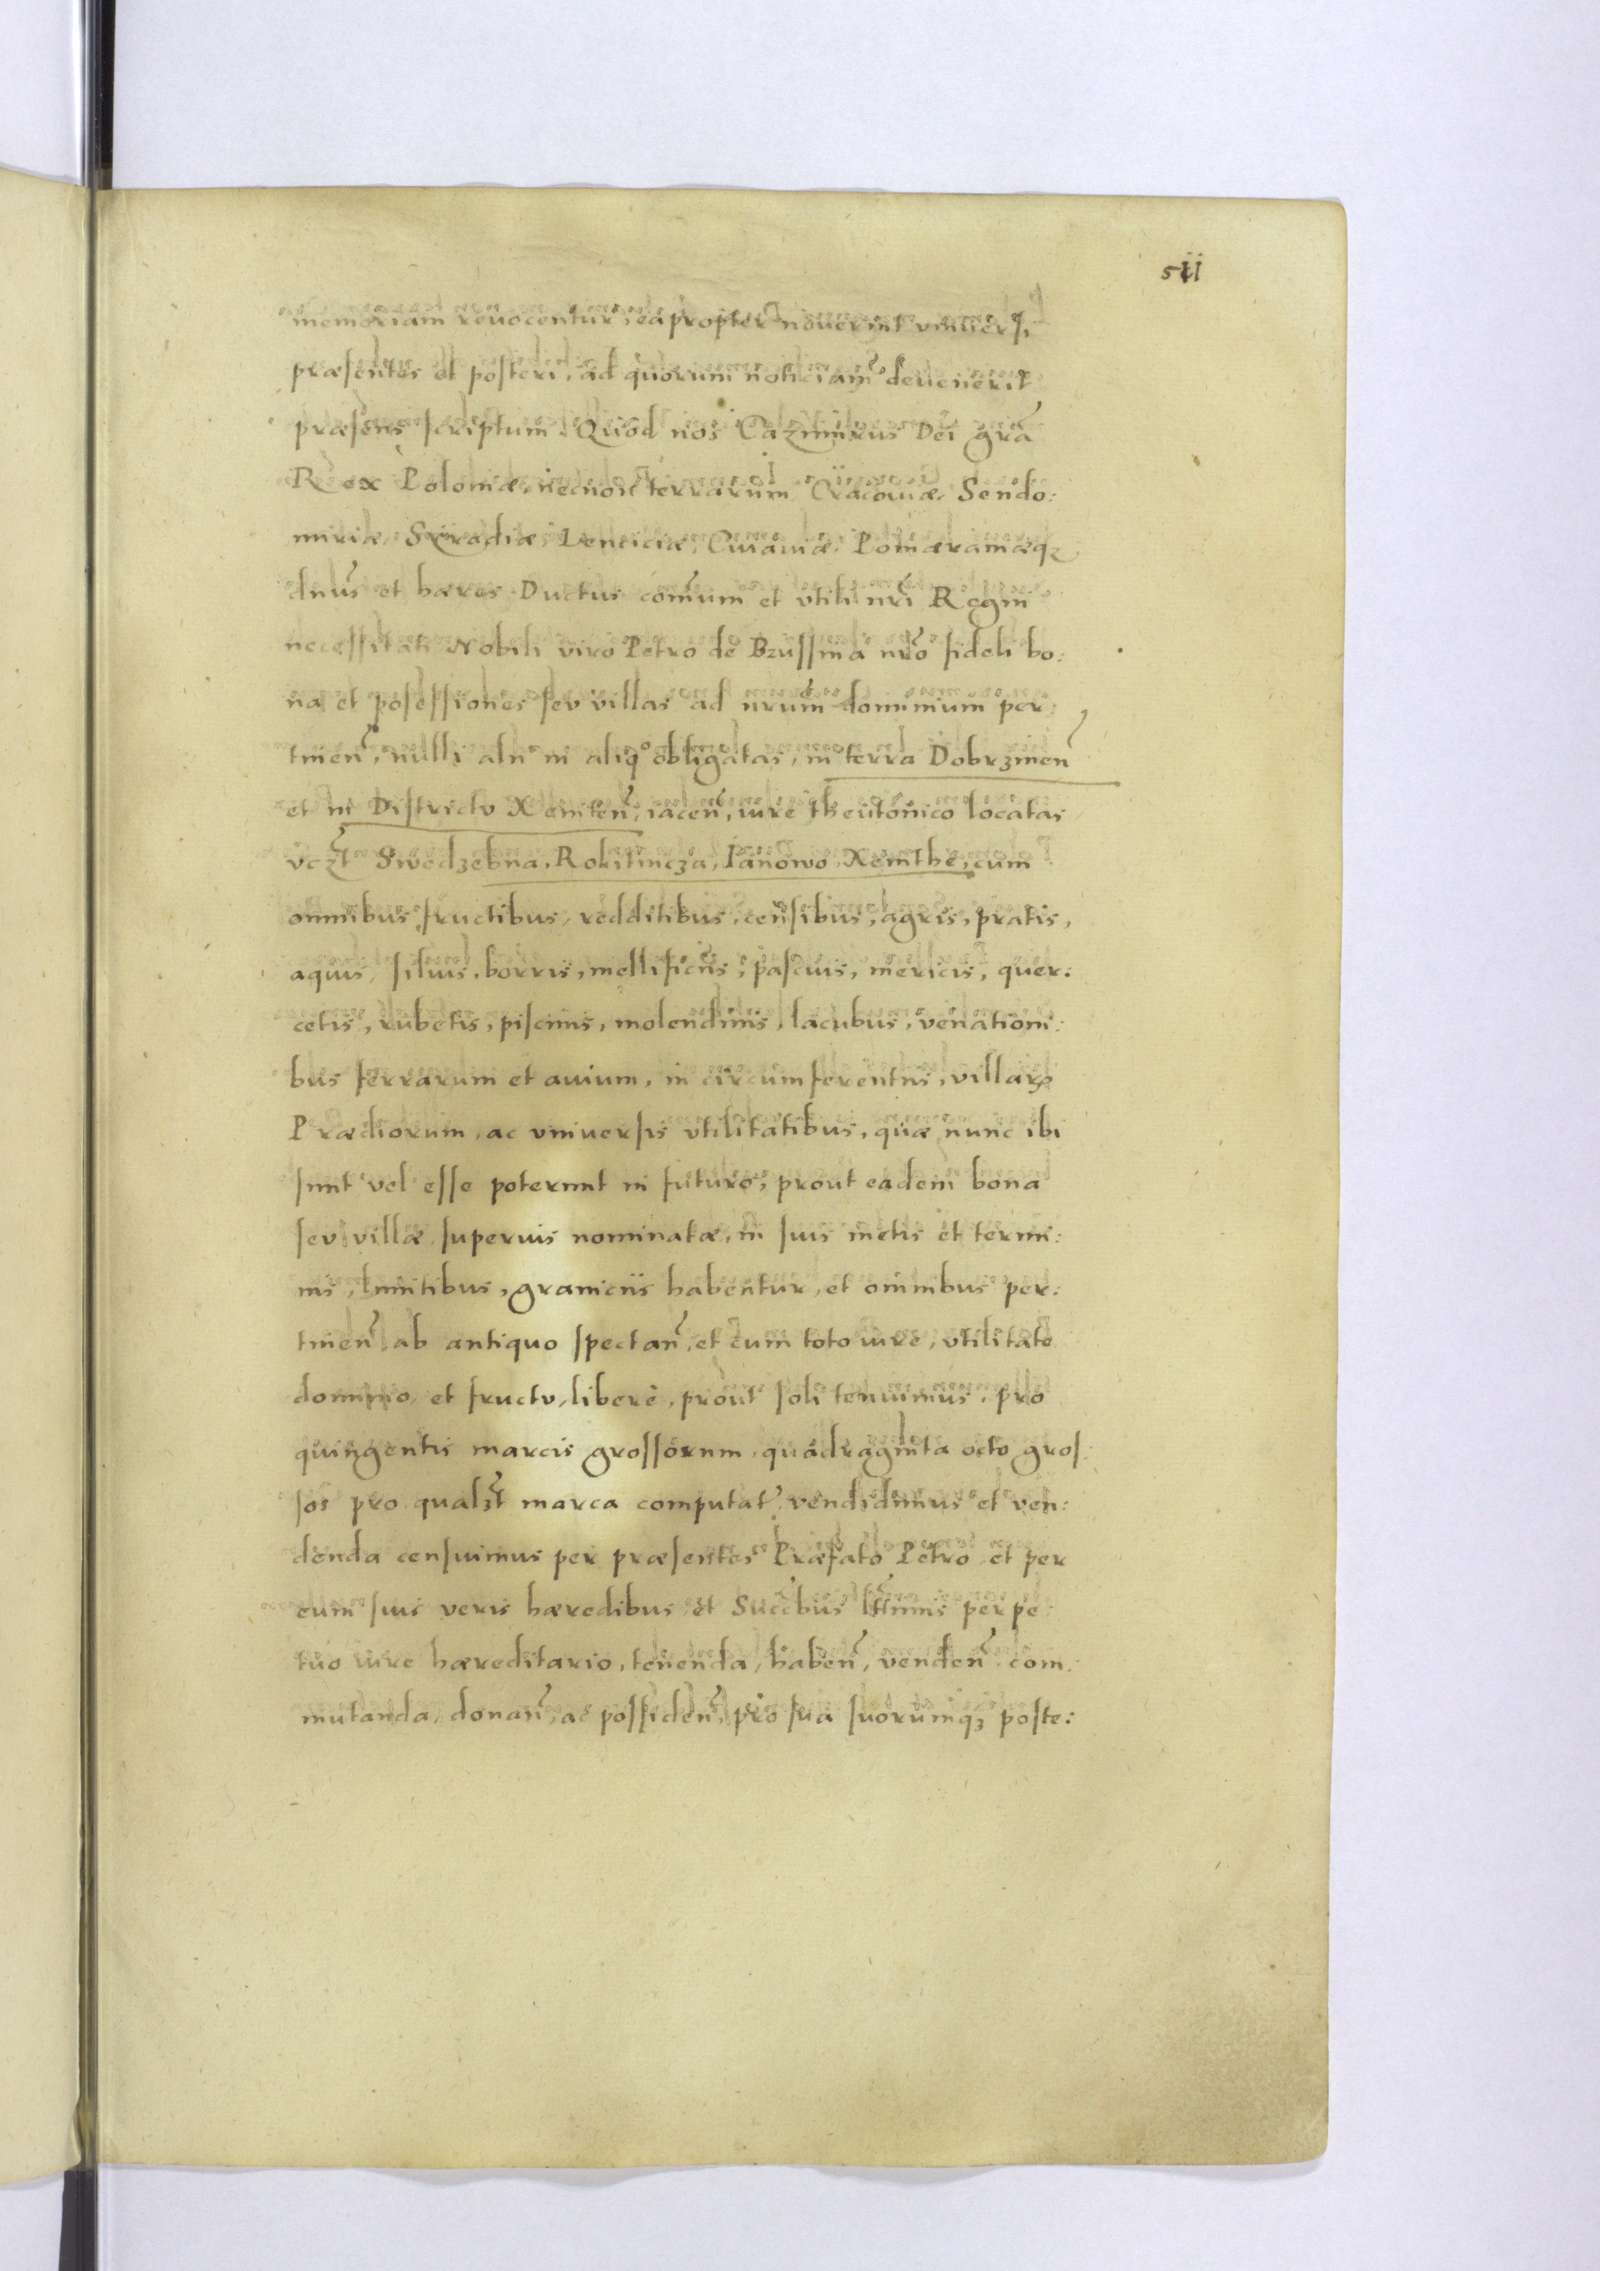 511
memoriam reuocentur, ea propter nouerint vniuersi
præsentes et posteri, ad quorum noticiam deuenerit
præsens scriptum. Quod nos Cazimirus Dei grã
Rex Poloniæ, necnon terrarum Cracouiæ, Sendo:
miriæ, Syradiæ, Lenciciæ, Cuiauiæ, Pomæraniæq;
dnus et hæres. Ductus com̃um et vtili nrĩ Regni
necessitati Nobili viro Petro de Brussina nrõ fideli bo:
na et possessiones seu villas ad nrũm dominium per:
tineñ, nulli aln in aliqº obligatas, in terra Dobrzineñ
et in Districtu Xemiteñ, iaceñ, iure theutonico locatas
vczt Swedzebna, Rokitincza, Ianowo Xemthe, cum
omnibus fructibus, redditibus, censibus, agris, pratis,
aquis, siluis, borris, mellificiis, pascuis, mericis, quer:
cetis, rubetis, piscinis, molendinis, lacubus, venationi:
bus ferrarum et auium, in circumferentiis, villarꝝ
Prædiorum, ac vniuersis vtilitatibus, quæ nunc ibi
sunt vel esse poterunt in futuro, prout eadem bona
seu villæ superius nominatæ, in suis metis et termi:
nis, limitibus, graniciis habentur, et omnibus per:
tineñ ab antiquo spectañ, et cum toto iure, vtilitate
dominio et fructu, liberè, prout soli tenuimus, pro
quingentis marcis grossorum quadraginta octo gros:
sos pro qualzt marca computat, vendidimus et ven:
denda censuimus per præsentes Præfato Petro et per
eum suis veris hæredibus et Succbus lttimis perpe:
tuo iure hæreditario, tenenda, habeñ, vendeñ com:
mutanda, donañ, ac possideñ, pro sua suorumq; poste: